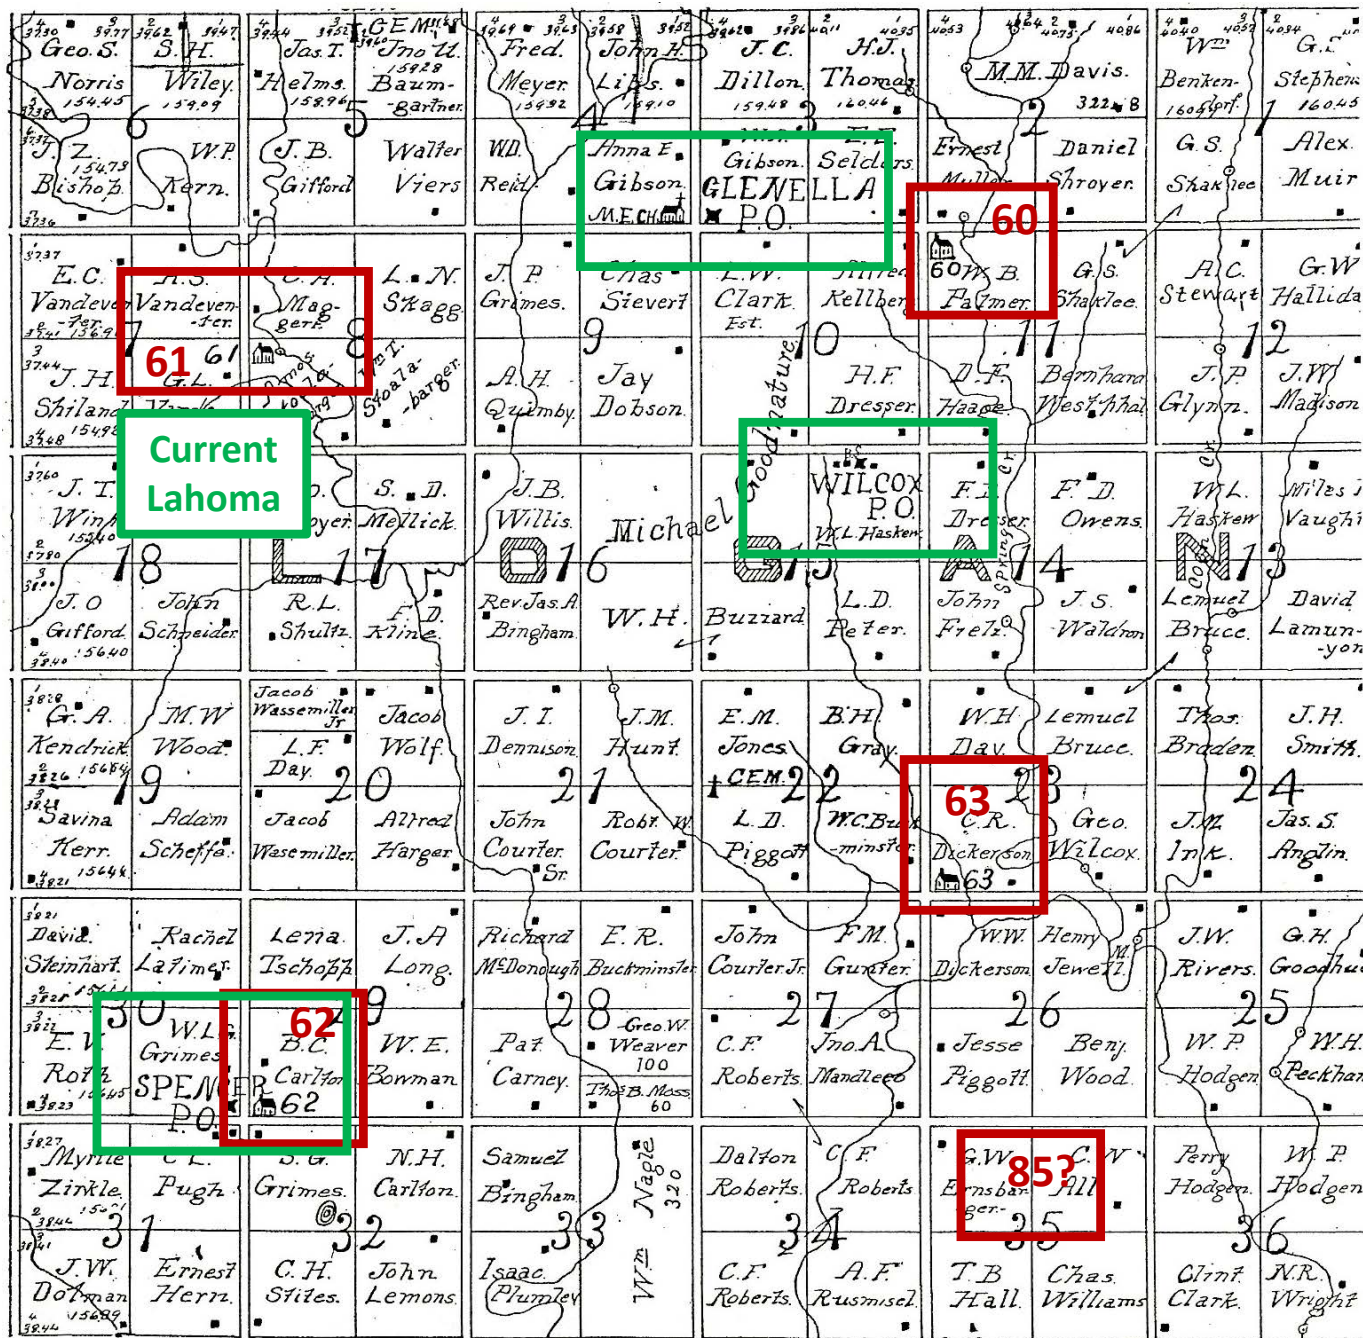 Geo. S. Norris 154.45
S. H. Wiley 159.09
Jas. T. Helms. 158.96
CEM.
Jno. U. Baum- -gartner. 159.28
Fred. Meyer 159.92
John H. Libs. 159.10
J. C. Dillon. 159.48
H. J. Thomas 160.46
M. M. Davis. 322.48
Wm Benken-
Stephens 160.45
6
5
4
3
2
1
J. Z. Bishop. 154.73
W. P. Kern.
J. B. Gifford
Walter Viers
W. D. Reid.
Anna E. Gibson.
M. E. CH.
Gibson.
E. E. Selders
GLENELLA P.O.
Ernest
Daniel Shroyer.
G. S. Shaklee
Alex. Muir
60
E. C. Vandeven -ter.
A. S. Vandeven- -ter.
C. A. Mag- gert.
L. N. Skagg
J. P. Grimes.
Chas Sievert
L. W. Clark. Est.
Alfred Kellber
60
W. B. Palmer.
G. S. Shaklee.
A. C. Stewart
G. W Hallida
7
8
9
10
11
12
61
61
J. H. Shiland
G. L.
Wm T. Stoala- -barger.
A. H. Quimby.
Jay Dobson.
H. F. Dresser.
D. F. Haage.
Bernhard Westphal
J. P. Glynn.
J. W. Madison
Current
Lahoma
Michael Goodnature
J. T.
S. D. Mellick.
J. B. Willis.
WILCOX P.O.
W. L. Hasken
Dresser.
F. D. Owens.
W. L. Haskew
Miles
Vaught
18
17
16
15
14
13
L O G A N
Spring Cr.
J. O Gifford. 156.40
John Schneider.
R. L. Shultz.
F. D. Kline.
Rev. Jas. A. Bingham.
W. H. Buzzard
L. D. Peter.
John Frelz.
J. S. Waldron
Lemuel Bruce.
David Lamun- -yon
G. A. Kendrick
M. W Wood.
Jacob Wassemiller Jr
L. F. Day.
Jacob Wolf.
J. I. Dennison.
J. M. Hunt.
E. M. Jones.
B. H. Gray.
W. H Day.
Lemuel Bruce.
Thos. Braden.
J. H. Smith.
19
20
21
CEM.
22
23
24
63
Savina Kerr. 156.44
Adam Scheffe.
Jacob Wasemiller.
Alfred Harger.
John Courter. Sr.
Robt. W. Courter.
L. D. Piggott
W. C. Buck -minster.
C. R. Dickerson
63
Geo. Wilcox.
J. M Ink.
Jas. S. Anglin.
David. Steinhart.
Rachel Latimer.
Lena. Tschopp
J. A Long.
Richard McDonough
E. R. Buckminster
John Courter. Jr.
F. M. Gunter.
W. W. Dickerson
Henry Jewell.
M.
J. W. Rivers.
G. H. Goodhue
30
29
28
27
26
25
62
E. V. Roth 156.45
W. L. G. Grimes
SPENCER P.O.
B. C. Carlton
62
W. E. Bowman
Pat. Carney.
Geo. W. Weaver 100
Thos B. Moss. 60
C. F. Roberts.
Jno. A. Mandleco
Jesse Piggott.
Benj. Wood.
W. P. Hodgen
W. H. Peckham
Myrtle Zirkle.
C. L. Pugh
S. G. Grimes.
N. H. Carlton.
Samuel Bingham
Wm Nagle 320
Dalton Roberts.
C. F. Roberts
G. W. Ernsbar ger.
85?
C. W All
Perry Hodgen.
W. P Hodgen
31
32
33
34
35
36
J. W. Dotman 156.89
Ernest Hern.
C. H. Stites.
John Lemons.
Isaac. Plumley
C. F. Roberts.
A. F. Rusmisel.
T. B Hall.
Chas. Williams
Clint. Clark.
N. R. Wright